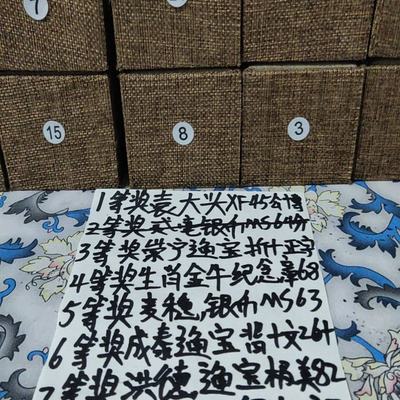 7
15 8 3
1等奖袁大头XF45公博
2等奖 银币MS64分
3等奖崇宁通宝折十正字
4等奖生肖金牛纪念章68
5等奖麦穗,银币MS63
6等奖成泰通宝背十文26+
7等奖洪德通宝极美82